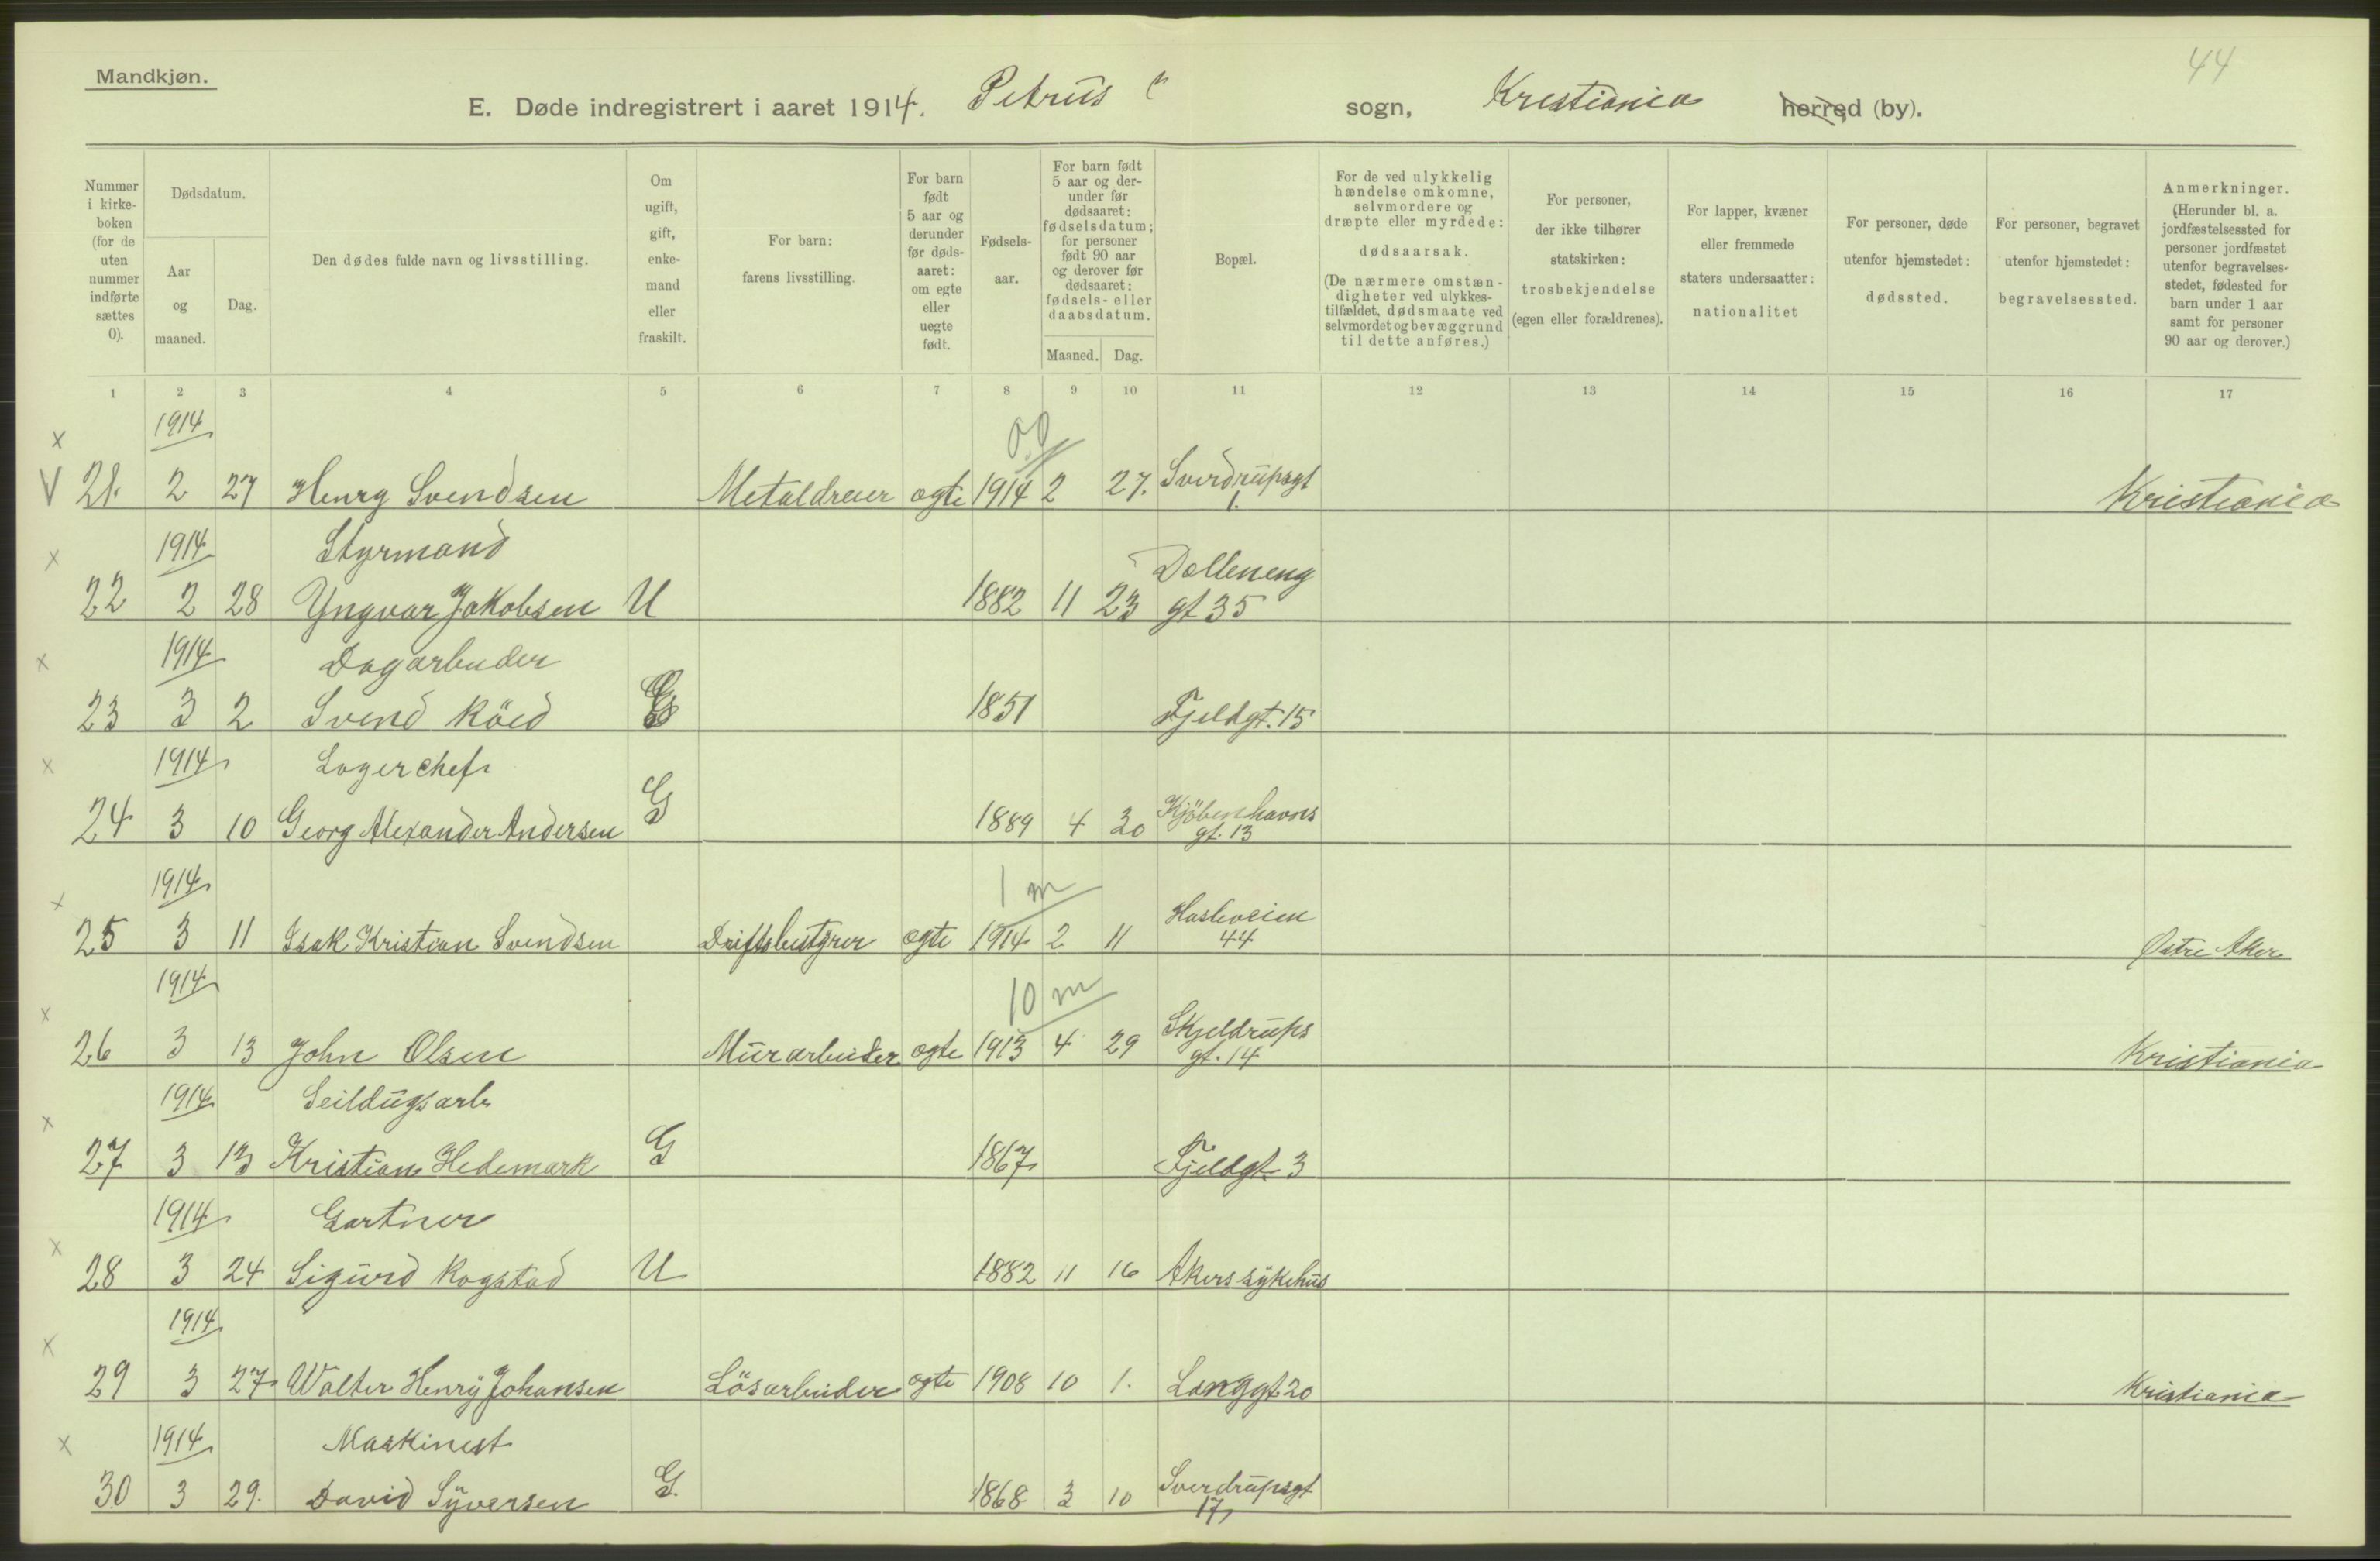 44
Mandkjøn.
E. Døde indregistrert i aaret 1914. Petrus sogn, Kristiania herred (by).
Nummer i kirkeboken (for de uten nummer indførte sættes 0).
Dødsdatum.
Aar og maaned.
Dag.
Den dødes fulde navn og livsstilling.
Om ugift, gift, enkemand eller fraskilt.
For barn: farens livsstilling.
For barn født 5 aar og derunder før dødsaaret: om egte eller uegte født.
Fødselsaar.
For barn født 5 aar og derunder før dødsaaret: fødselsdatum; for personer født 90 aar og derover før dødsaaret: fødsels- eller daabsdatum.
Maaned. Dag.
Bopæl.
For de ved ulykkelig hændelse omkomne, selvmordere og dræpte eller myrdede: dødsaarsak. (De nærmere omstændigheter ved ulykkestilfældet, dødsmaate ved selvmordet og bevæggrund til dette anføres.)
For personer, der ikke tilhører statskirken: trosbekjendelse (egen eller forældrenes).
For lapper, kvæner eller fremmede staters undersaatter: nationalitet
For personer, døde utenfor hjemstedet: dødssted.
For personer, begravet utenfor hjemstedet: begravelsessted.
Anmerkninger. (Herunder bl. a. jordfæstelsessted for personer jordfæstet utenfor begravelsesstedet, fødested for barn under 1 aar samt for personer 90 aar og derover.)
1 2 3 4 5 6 7 8 9 10 11 12 13 14 15 16 17
x 1914 00
V 21. 2 27 Henry Svendsen Metaldreier ogte 1914 2 27. Sverdrupsgt 1. Kristiania
x 1914 Styrmand
22 2 28 Yngvar Jakobsen U 1882 11 23 Dælleneng gt 35
x 1914 Dagarbeider
23 3 2 Svend Röed G 1851 Fjeldgt. 15
x 1914 Lagerchef
24 3 10 Georg Alexander Andersen G 1889 4 30 Kjöbenhavns gt. 13
x 1914 1 m
25 3 11 Isak Kristian Svendsen Driftsbestyrer ogte 1914 2 11 Hasleveien 44 Østre Aker
x 1914 10 m
26 3 13 John Olsen Murarbeider ogte 1913 4 29 Skjeldrups gt. 14 Kristiania
x 1914 Seildugsarb
27 3 13 Kristian Hedemark G 1867 Fjeldgt. 3
x 1914 Gartner
28 3 24 Sigurd Rogstad U 1882 11 16 Akers sykehus
x 1914
29 3 27 Walter Henry Johansen Lösarbeider ogte 1908 10 1. Langgt 20 Kristiania
x 1914 Maskinist
30 3 29. David Syversen G. 1868 3 10 Sverdrupsgt 17